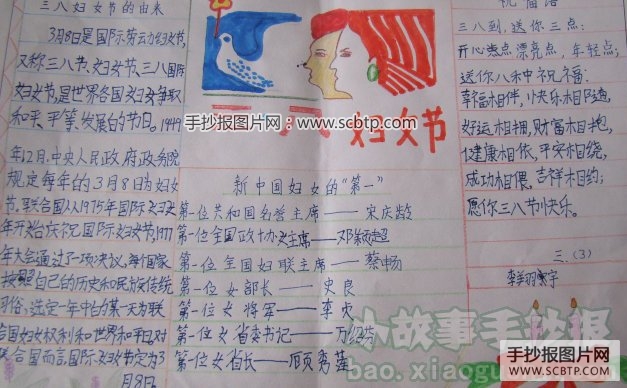 三八妇女节的由来
3月8日是国际劳动妇女节,
又称三八节、妇女节、三八国际
妇女节,是世界各国妇女争取
和平、平等、发展的节日。1949
年12月,中央人民政府政务院
规定每年的3月8日为妇女
节。联合国从1975年国际妇女
年开始庆祝国际妇女节,1977
年大会通过了一项决议,每个国家
按照自己的历史和民族传统
习俗,选定一年中的某一天为联
合国妇女权利和世界和平日。对
合国而言,国际妇女节定为3
月8日。
三八妇女节
手抄报图片网:www.scbtp.com
新中国妇女的“第一”
第一位共和国名誉主席——宋庆龄
第一位全国政协女主席——邓颖超
第一位全国妇联主席——蔡畅
第一位女部长——史良
第一位女将军——李贞
第一位女省委书记——万绍芬
第一位女省长——顾秀莲
祝福语
三八到,送你三点:
开心点,漂亮点,年轻点;
送你八种祝福:
幸福相伴,快乐相随,
好运相拥,财富相抱,
健康相依,平安相绕,
成功相偎,吉祥相约;
愿你三八节快乐。
三.(3)
李羽寰宇
小故事手抄报
bao.xiaogu
手抄报图片网
www.SCBTP.com